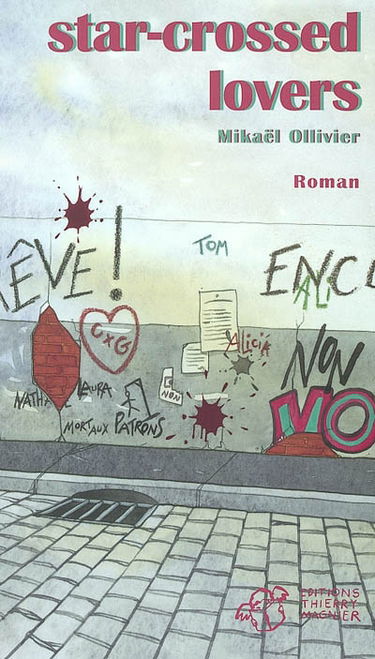 star-crossed
lovers
Mikaël Ollivier
Roman
TOM
RÊVE!
ENC
ALI
C x G
Alicia
NON
LAURA
NON
MO
MORT AUX PATRONS
EDITIONS
THIERRY
MAGNIER